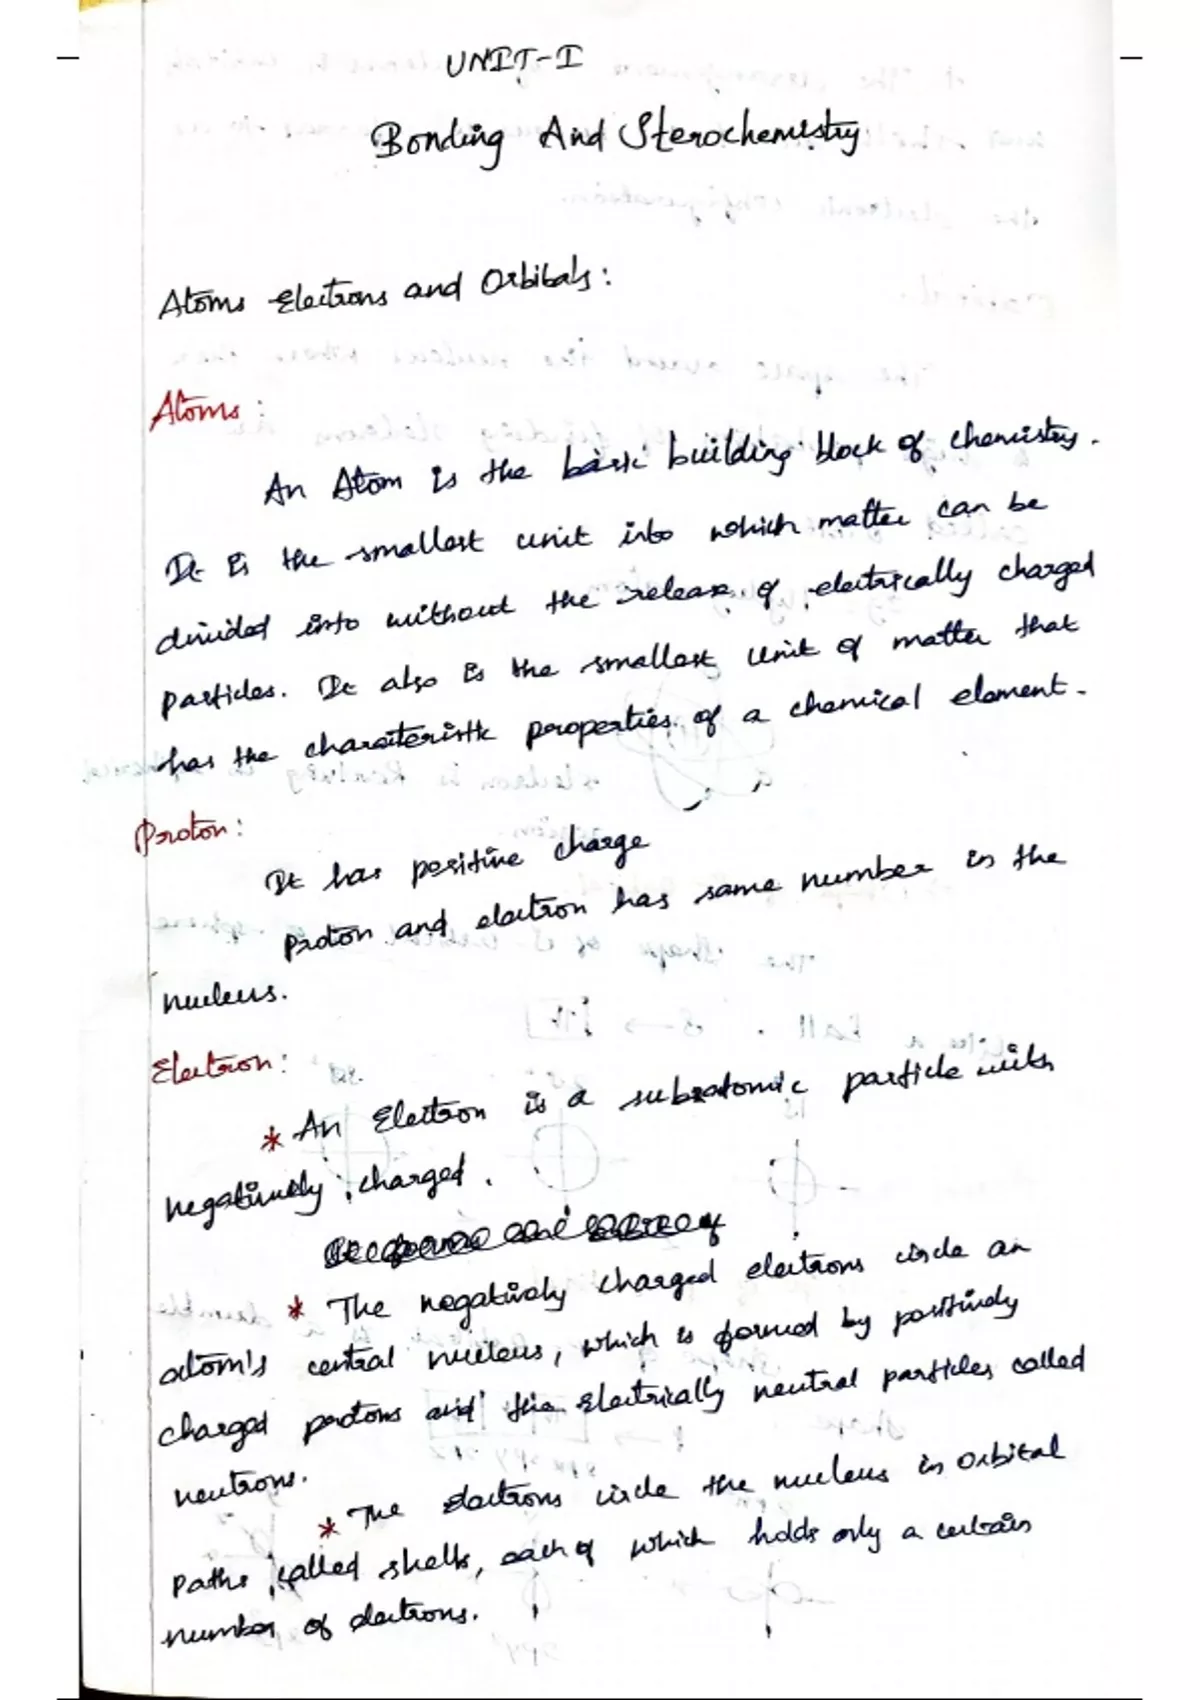 UNIT-I
Bonding And Sterochemistry
Atoms Electrons and Orbitals:
Atoms:
An Atom is the basic building block of chemistry.
It is the smallest unit into which matter can be
divided into without the release of electrically charged
particles. It also is the smallest unit of matter that
has the characteristic properties of a chemical element.
Proton:
It has positive charge
proton and electron has same number in the
nucleus.
Electron:
* An Electron is a subatomic particle with
negatively charged.
* The negatively charged electrons circle an
atom's central nucleus, which is formed by positively
charged protons and the electrically neutral particles called
neutrons.
* The electrons circle the nucleus in orbital
paths called shells, each of which holds only a certain
number of electrons.